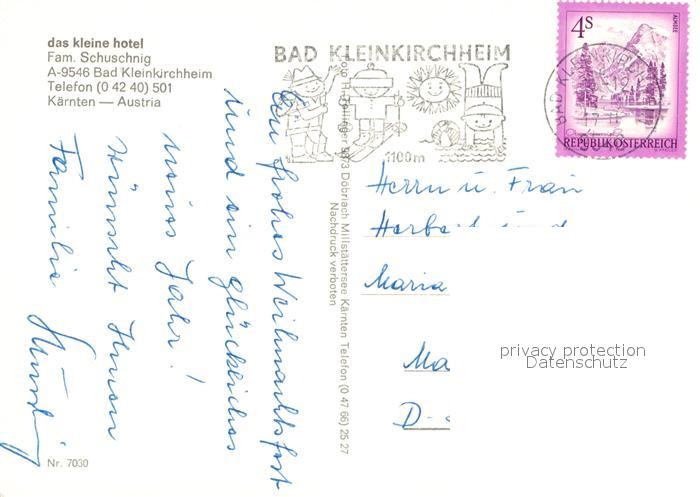 das kleine hotel
Fam. Schuschnig
A-9546 Bad Kleinkirchheim
Telefon (0 42 40) 501
Kärnten — Austria
BAD KLEINKIRCHHEIM
1100m
4S
ALMSEE
REPUBLIK ÖSTERREICH
BAD KLEINKIRCHHEIM
Ein frohes Weihnachtsfest
und ein glückliches
neues Jahr!
wünscht Ihnen
Familie
9873 Döbriach Millstättersee Kärnten Telefon (0 47 66) 25 27
Nachdruck verboten
Herrn u. Frau
Maria
Ma
D-
privacy protection
Datenschutz
Nr. 7030